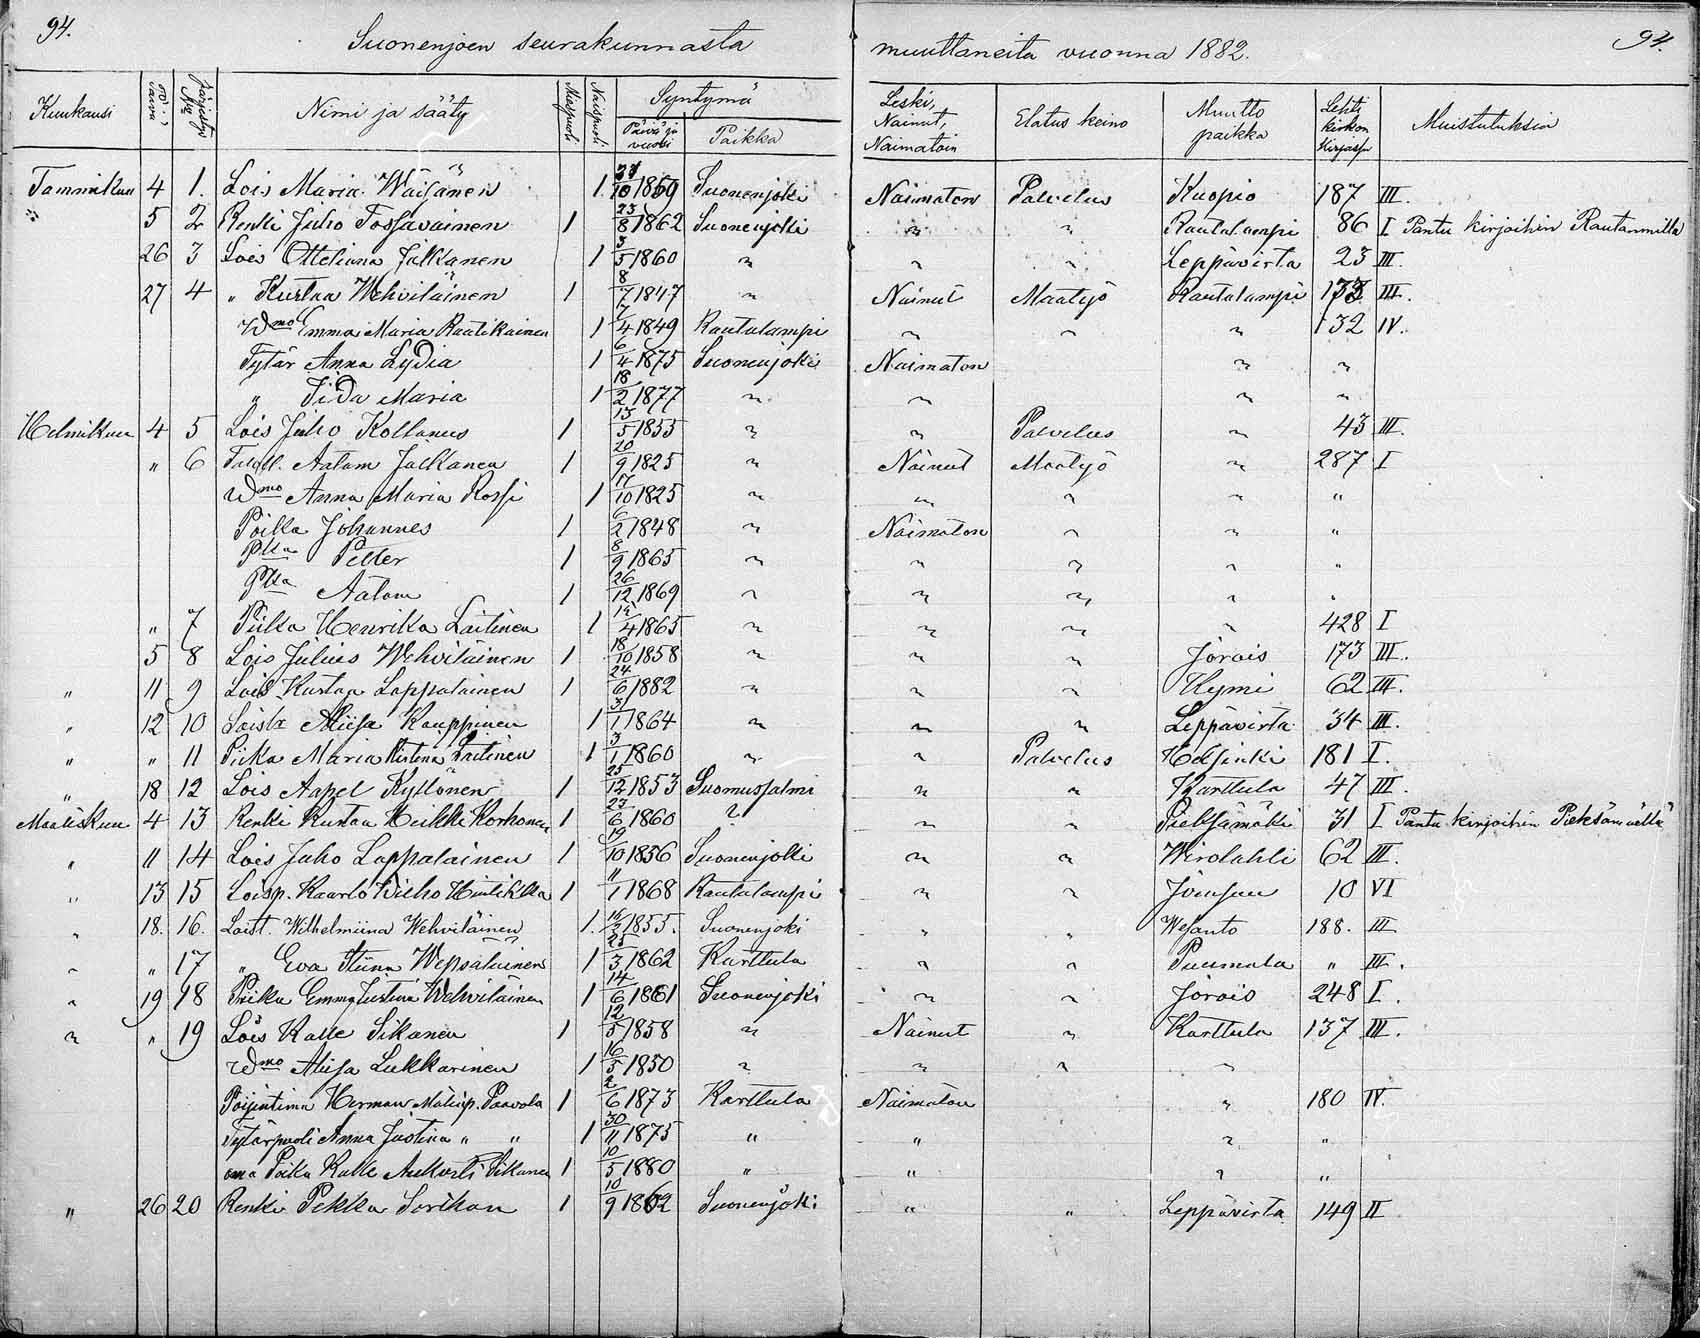 94. Suonenjoen seurakunnasta muuttaneita vuonna 1882. 94.
Kuukausi Päivä Järjestys No Nimi ja sääty Miespuoli Naispuoli Syntymä Päivä ja vuosi Paikka Leski, Nainut, Naimatoin Elatus keino Muutto paikka Lehti kirkon kirjassa Muistutuksia
Tammikuu 4 1. Lois Maria Wäisänen 1. 1859 Suonenjoki Naimaton Palvelus Kuopio 187 III.
" 5 2 Renki Juho Tossavainen 1 23/8 1862 Suonenjoki " " Rautalampi 86 I Pantu kirjoihin Rautammilla
26 3 Lois Otteliana Jalkanen 1 3/5 1860 " " " Leppävirta 23 III.
27 4 " Kustaa Wehviläinen 1 8/7 1847 " Nainut Maatyö Rautalampi III.
Wmo Emma Maria Raatikainen 1 7/4 1849 Rautalampi " " " 132 IV.
Tytär Anna Lydia 1 6/4 1875 Suonenjoki Naimaton " "
" Iida Maria 1 18/2 1877 " " " "
Helmikuu 4 5 Lois Juho Kollanus 1 13/5 1853 " " Palvelus " 43 III.
" 6 Aatam Jalkanen 1 20/9 1825 " Nainut Maatyö " 287 I
Wmo Anna Maria Rossi 1 17/10 1825 " " " " "
Poika Johannes 1 6/2 1848 " Naimaton " " "
Pka Petter 1 8/9 1865 " " " " "
Pka Aatam 1 26/12 1869 " " " " "
" 7 Piika Henrika Laitinen 1 1865 " " " " 428 I
5 8 Lois Julius Wehviläinen 1 18/10 1858 " " " Jorois 173 III.
" 11 9 Lois Kustaa Lappalainen 1 24/6 1882 " " " Kymi 62 III.
" 12 10 Loistr Aliisa Kauppinen 1 31/1 1864 " " " Leppävirta 34 III.
" " 11 Piika Maria Kristina Laitinen 1 3/1 1860 " " Palvelus Helsinki 181 I.
" 18 12 Lois Aapel Kyllönen 1 25/12 1853 Suomussalmi " " Karttula 47 III.
Maaliskuu 4 13 Renki Kustaa Heikki Korhonen 1 23/6 1860 " " " Pieksämäki 31 I Pantu kirjoihin Pieksämäellä
" 11 14 Lois Juho Lappalainen 1 19/10 1856 Suonenjoki " " Wirolahti 62 III.
" 13 15 Loisp. Kaarlo Wilho Hintikka 1 11/1 1868 Rautalampi " " Joensuu 10 VI
" 18. 16. Loist. Wilhelmiina Wehviläinen 1. 1855. Suonenjoki " " Wesanto 188. III
" " 17 " Eva Stiina Wepsäläinen 1 25/3 1862 Karttula " " Puumala " III.
" 19 18 Piika Emma Justiina Wehviläinen 1 14/6 1861 Suonenjoki " " Jorois 248 I.
" " 19 Lois Kalle Sikanen 1 12/5 1858 " Nainut " Karttula 137 III.
Wmo Aliisa Lukkarinen 1 16/5 1850 " " " "
Poijintima Herman Paavola 1 2/6 1873 Karttula Naimaton " 180 IV.
Tytärpuoli Anna Justina " " 1 30/11 1875 " " " "
oma Poika Kalle Sikanen 1 10/5 1880 " " " "
" 26 20 Renki Pekka Sorikan 1 10/9 1862 Suonenjoki " " Leppävirta 149 II